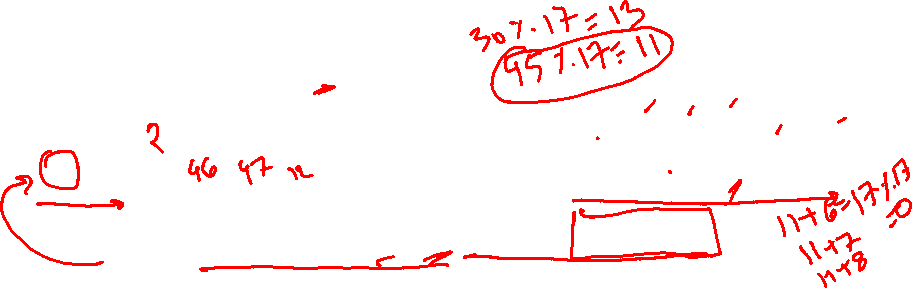 30%.17=13
45%.17=11
2
46 47 12
11+6=17%17
=0
11+7
11+8